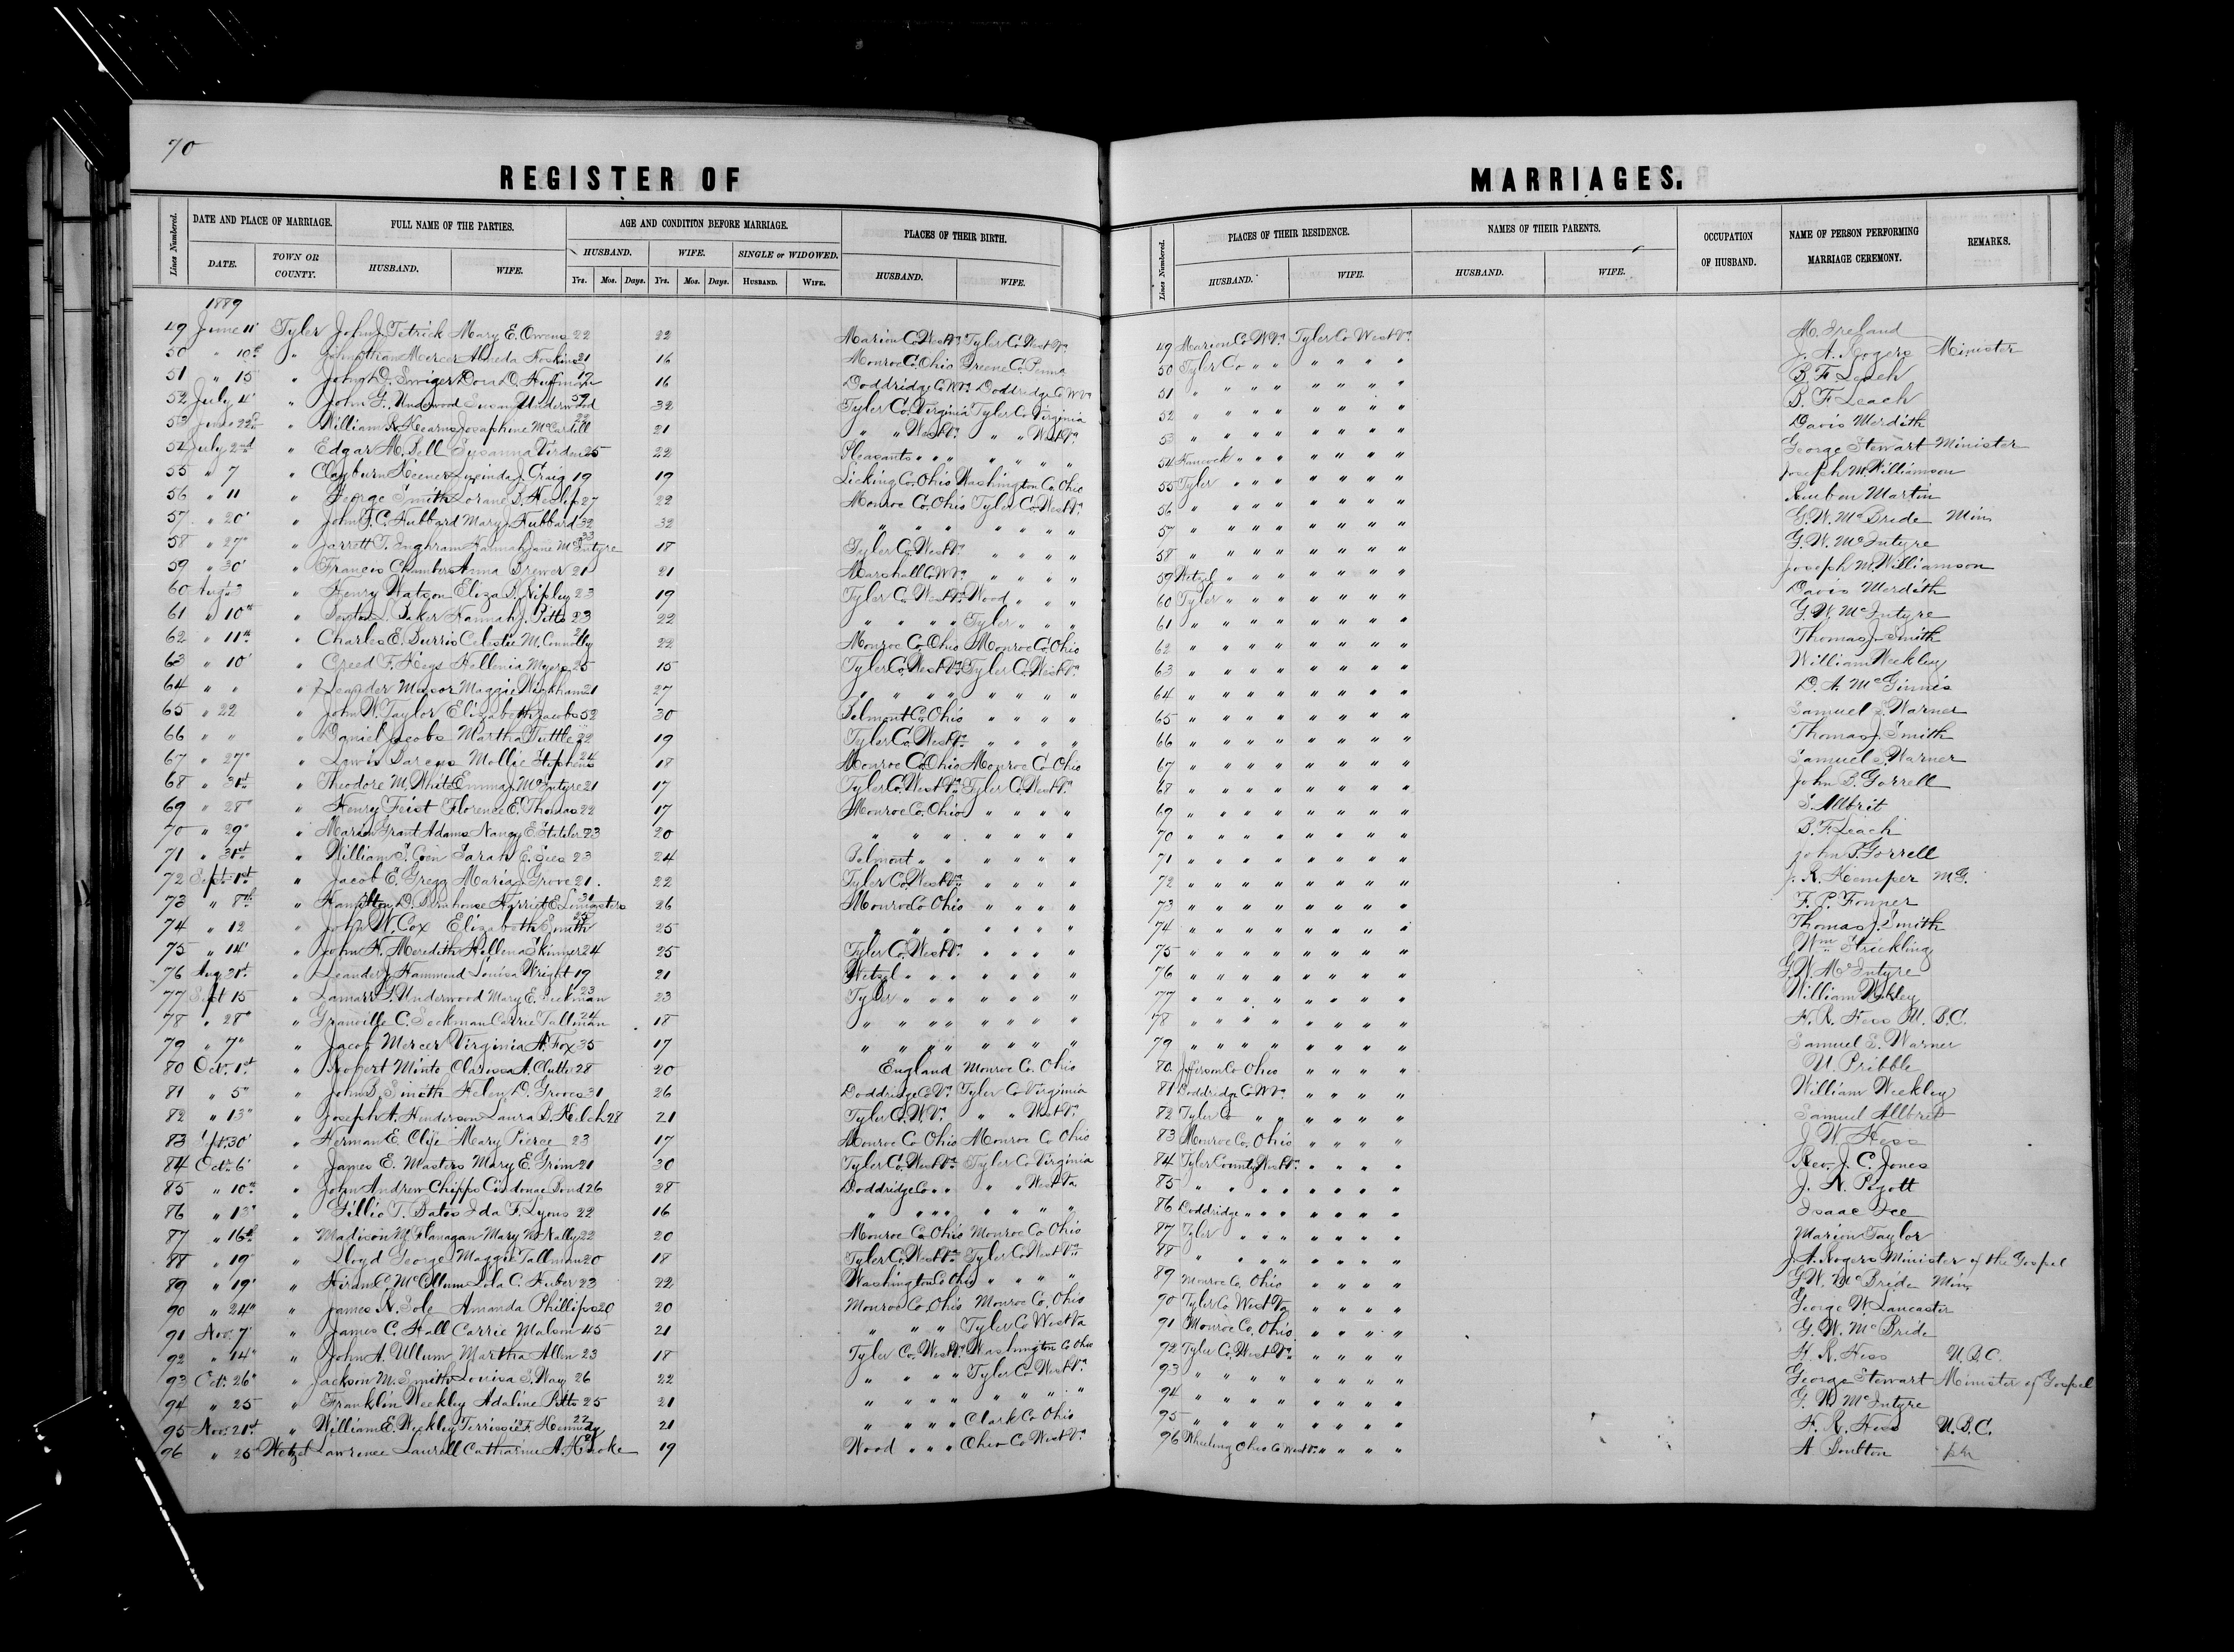 70
REGISTER OF MARRIAGES.
Lines Numbered. DATE AND PLACE OF MARRIAGE. FULL NAME OF THE PARTIES. AGE AND CONDITION BEFORE MARRIAGE. PLACES OF THEIR BIRTH. Lines Numbered. PLACES OF THEIR RESIDENCE. NAMES OF THEIR PARENTS. OCCUPATION OF HUSBAND. NAME OF PERSON PERFORMING MARRIAGE CEREMONY. REMARKS.
DATE. TOWN OR COUNTY. HUSBAND. WIFE. HUSBAND. WIFE. SINGLE or WIDOWED. HUSBAND. WIFE. HUSBAND. WIFE. HUSBAND. WIFE.
Yrs. Mos. Days. Yrs. Mos. Days. HUSBAND. WIFE.
1889
49 June 11" Tyler John J. Tetrick Mary E. Owens 22 22 Marion Co. West Va. Tyler Co. West Va. 49 Marion Co. W Va. Tyler Co West Va. M. Ireland
50 " 10th " Johnathan Mercer Almeda Hoskins 21 16 Monroe Co. Ohio Greene Co. Penna 50 Tyler Co " " " " " " J. A. Rogers Minister
51 " 15 " John D. Swiger Dora D. Huffman 19 16 Doddridge Co W Va. Doddridge Co W Va 51 " " " " " " " " B. F. Leach
52 July 4" " John G. Underwood Susan Underwood 59 32 Tyler Co. Virginia Tyler Co Virginia 52 " " " " " " " " B. F. Leach
53 June 22nd " William R. Kearns Josephine McCardill 22 21 " " West Va. " " West Va. 53 " " " " " " " " Davis Merdith
54 July 2nd " Edgar M. Bell Susanna Virden 25 22 Pleasants " " " " " " " 54 Hancock " " " " " " " George Stewart Minister
55 " 7 " Clayburn Keener Lucinda J. Craig 19 19 Licking Co. Ohio Washington Co. Ohio 55 Tyler " " " " " " " Joseph McWilliamson
56 " 11 " George Smith Lorane B. Heslip 27 22 Monroe Co. Ohio Tyler Co. West Va. 56 " " " " " " " " Reuben Martin
57 " 20" " John F. C. Hubbard Mary J. Hubbard 32 32 " " " " " " " 57 " " " " " " " " G. W. McBride Min
58 " 27" " Jarrett T. Inghram Hannah Jane McIntyre 33 18 Tyler Co. West Va. " " " " 58 " " " " " " " " G. W. McIntyre
59 " 30" " Francis Chambers Anna Brewer 21 21 Marshall Co W Va. " " " " 59 Wetzel " " " " " " " Joseph McWilliamson
60 Aug. 3 " Henry Watson Eliza B. Nipley 23 19 Tyler Co. West Va. Wood " " " 60 Tyler " " " " " " " Davis Merdith
61 " 10th " Baker Hannah J. Pitts 23 22 " " " " Tyler " " " 61 " " " " " " " " G. W. McIntyre
62 " 11th " Charles E. Burris Celestie M. Connolly 26 22 Monroe Co. Ohio Monroe Co. Ohio 62 " " " " " " " " Thomas J. Smith
63 " 10" " Creed F. Keys Hellenia Myers 25 15 Tyler Co. West Va. Tyler Co. West Va. 63 " " " " " " " " William Weekley
64 " " " Leander Mason Maggie Wickham 21 27 " " " " " " " " 64 " " " " " " " " D. A. McGinnis
65 " 22 " John W. Taylor Elizabeth Jacobs 52 30 Belmont Co. Ohio " " " " 65 " " " " " " " " Samuel S. Warner
66 " " " Daniel Jacobs Martha Tuttle 22 19 Tyler Co. West Va. " " " " 66 " " " " " " " " Thomas J. Smith
67 " 27" " Lewis Darcus Mollie Stephens 24 18 Monroe Co. Ohio Monroe Co Ohio 67 " " " " " " " " Samuel S. Warner
68 " 31st " Theodore M. White Emma J. McIntyre 21 17 Tyler Co. West Va. Tyler Co. West Va. 68 " " " " " " " " John B. Gorrell
69 " 28" " Henry Feist Florence E. Thomas 22 17 Monroe Co. Ohio " " " " 69 " " " " " " " " S. Allbrit
70 " 29" " Marion Grant Adams Nancy E. Statler 23 20 " " " " " " " 70 " " " " " " " " B. F. Leach
71 " 31st " William S. Coen Sarah E. Gees 23 24 Belmont " " " " " " 71 " " " " " " " " John B. Gorrell
72 Sept. 1st " Jacob E. Gregg Maria J. Grove 21 22 Tyler Co. West Va. " " " " 72 " " " " " " " " J. R. Kemper M.G.
73 " 8th " Hampton D. Barnhouse Harriet E. 31 26 Monroe Co Ohio " " " " 73 " " " " " " " " F. P. Fonner
74 " 12 " John W. Cox Elizabeth Smith 25 25 " " " " " " " 74 " " " " " " " " Thomas J. Smith
75 " 14" " John H. Meredith Hellena Skinner 24 25 Tyler Co. West Va. " " " " 75 " " " " " " " " Wm Strickling
76 Aug 21st " Leander J. Hammond Louisa Wright 19 21 Wetzel " " " " " " " 76 " " " " " " " " G. W. McIntyre
77 Sept 15 " Lamarr F. Underwood Mary E. Seckman 23 23 Tyler " " " " " " " 77 " " " " " " " " William Wekley
78 " 28" " Granville C. Seckman Carrie Tallman 24 18 " " " " " " " " 78 " " " " " " " " H. R. Hess U. B. C.
79 " 7" " Jacob Mercer Virginia A. Fox 35 17 " " " " " " " " 79 " " " " " " " " Samuel S. Warner
80 Oct. 1st " Robert Minto Clarissa A. Clutter 28 20 England Monroe Co. Ohio 80 Jefferson Co Ohio " " " " U. Pribble
81 " 5" " John S. Smith Helen D. Groves 31 26 Doddridge Co Va Tyler Co Virginia 81 Doddridge Co W Va " " " " William Weekley
82 " 13" " Joseph A. Henderson Laura B. Kilch 28 21 Tyler Co. W. Va. " " West Va. 82 Tyler Co " " " " " " Samuel Allbrit
83 Spt. 30" " Herman E. Cliji Mary Pierce 23 17 Monroe Co Ohio Monroe Co Ohio 83 Monroe Co. Ohio " " " " J. W. Hess
84 Oct. 6" " James E. Masters Mary E. Grim 21 30 Tyler Co. West Va. Tyler Co Virginia 84 Tyler County West Va. " " " " Rev. J. C. Jones
85 " 10th " John Andrew Chipps Bond 26 28 Doddridge Co " " " " West Va. 85 " " " " " " " " J. N. Pigott
86 " 13" " Gillie T. Bates Ida F. Lyons 22 16 " " " " " " " " 86 Doddridge " " " " " " " Isaac Ice
87 " 16th " Madison M. Flanagan Mary McNally 22 20 Monroe Co. Ohio Monroe Co Ohio 87 Tyler " " " " " " " Marion Taylor
88 " 19 " Lloyd George Maggie Tallman 20 18 Tyler Co. West Va. Tyler Co West Va. 88 " " " " " " " " J. A. Rogers Minister of the Gospel
89 " 19" " Hiram C. McCollum Lola C. Huber 23 22 Washington Co Ohio " " " " 89 Monroe Co. Ohio " " " " G. W. McBride Min
90 " 24" " James N. Sole Amanda Phillips 20 20 Monroe Co. Ohio Monroe Co. Ohio 90 Tyler Co West Va " " " " George W. Lancaster
91 Nov. 7" " James C. Hall Carrie Malson 45 21 " " " Tyler Co West Va 91 Monroe Co. Ohio " " " " G. W. McBride
92 " 14" " John A. Ullum Martha Allen 23 18 Tyler Co. West Va. Washington Co Ohio 92 Tyler Co. West Va. " " " " H. R. Hess U. B. C.
93 Oct. 26" " Jackson M. Smith Louisa S. Way 26 22 " " " " Tyler Co West Va. 93 " " " " " " " " George Stewart Minister of Gospel
94 " 25 " Franklin Weekley Adaline Pitts 25 21 " " " " " " " " 94 " " " " " " " " G. W. McIntyre
95 Nov. 21st " William E. Weekley F. 22 21 " " " " Clark Co Ohio 95 " " " " " " " " H. R. Hess U. B. C.
96 " 25 Wetzel Lawrence Laurell Catharine A. 19 Wood " " " Ohio Co West Va. 96 Wheeling Ohio Co West Va. " " " " A Boulton